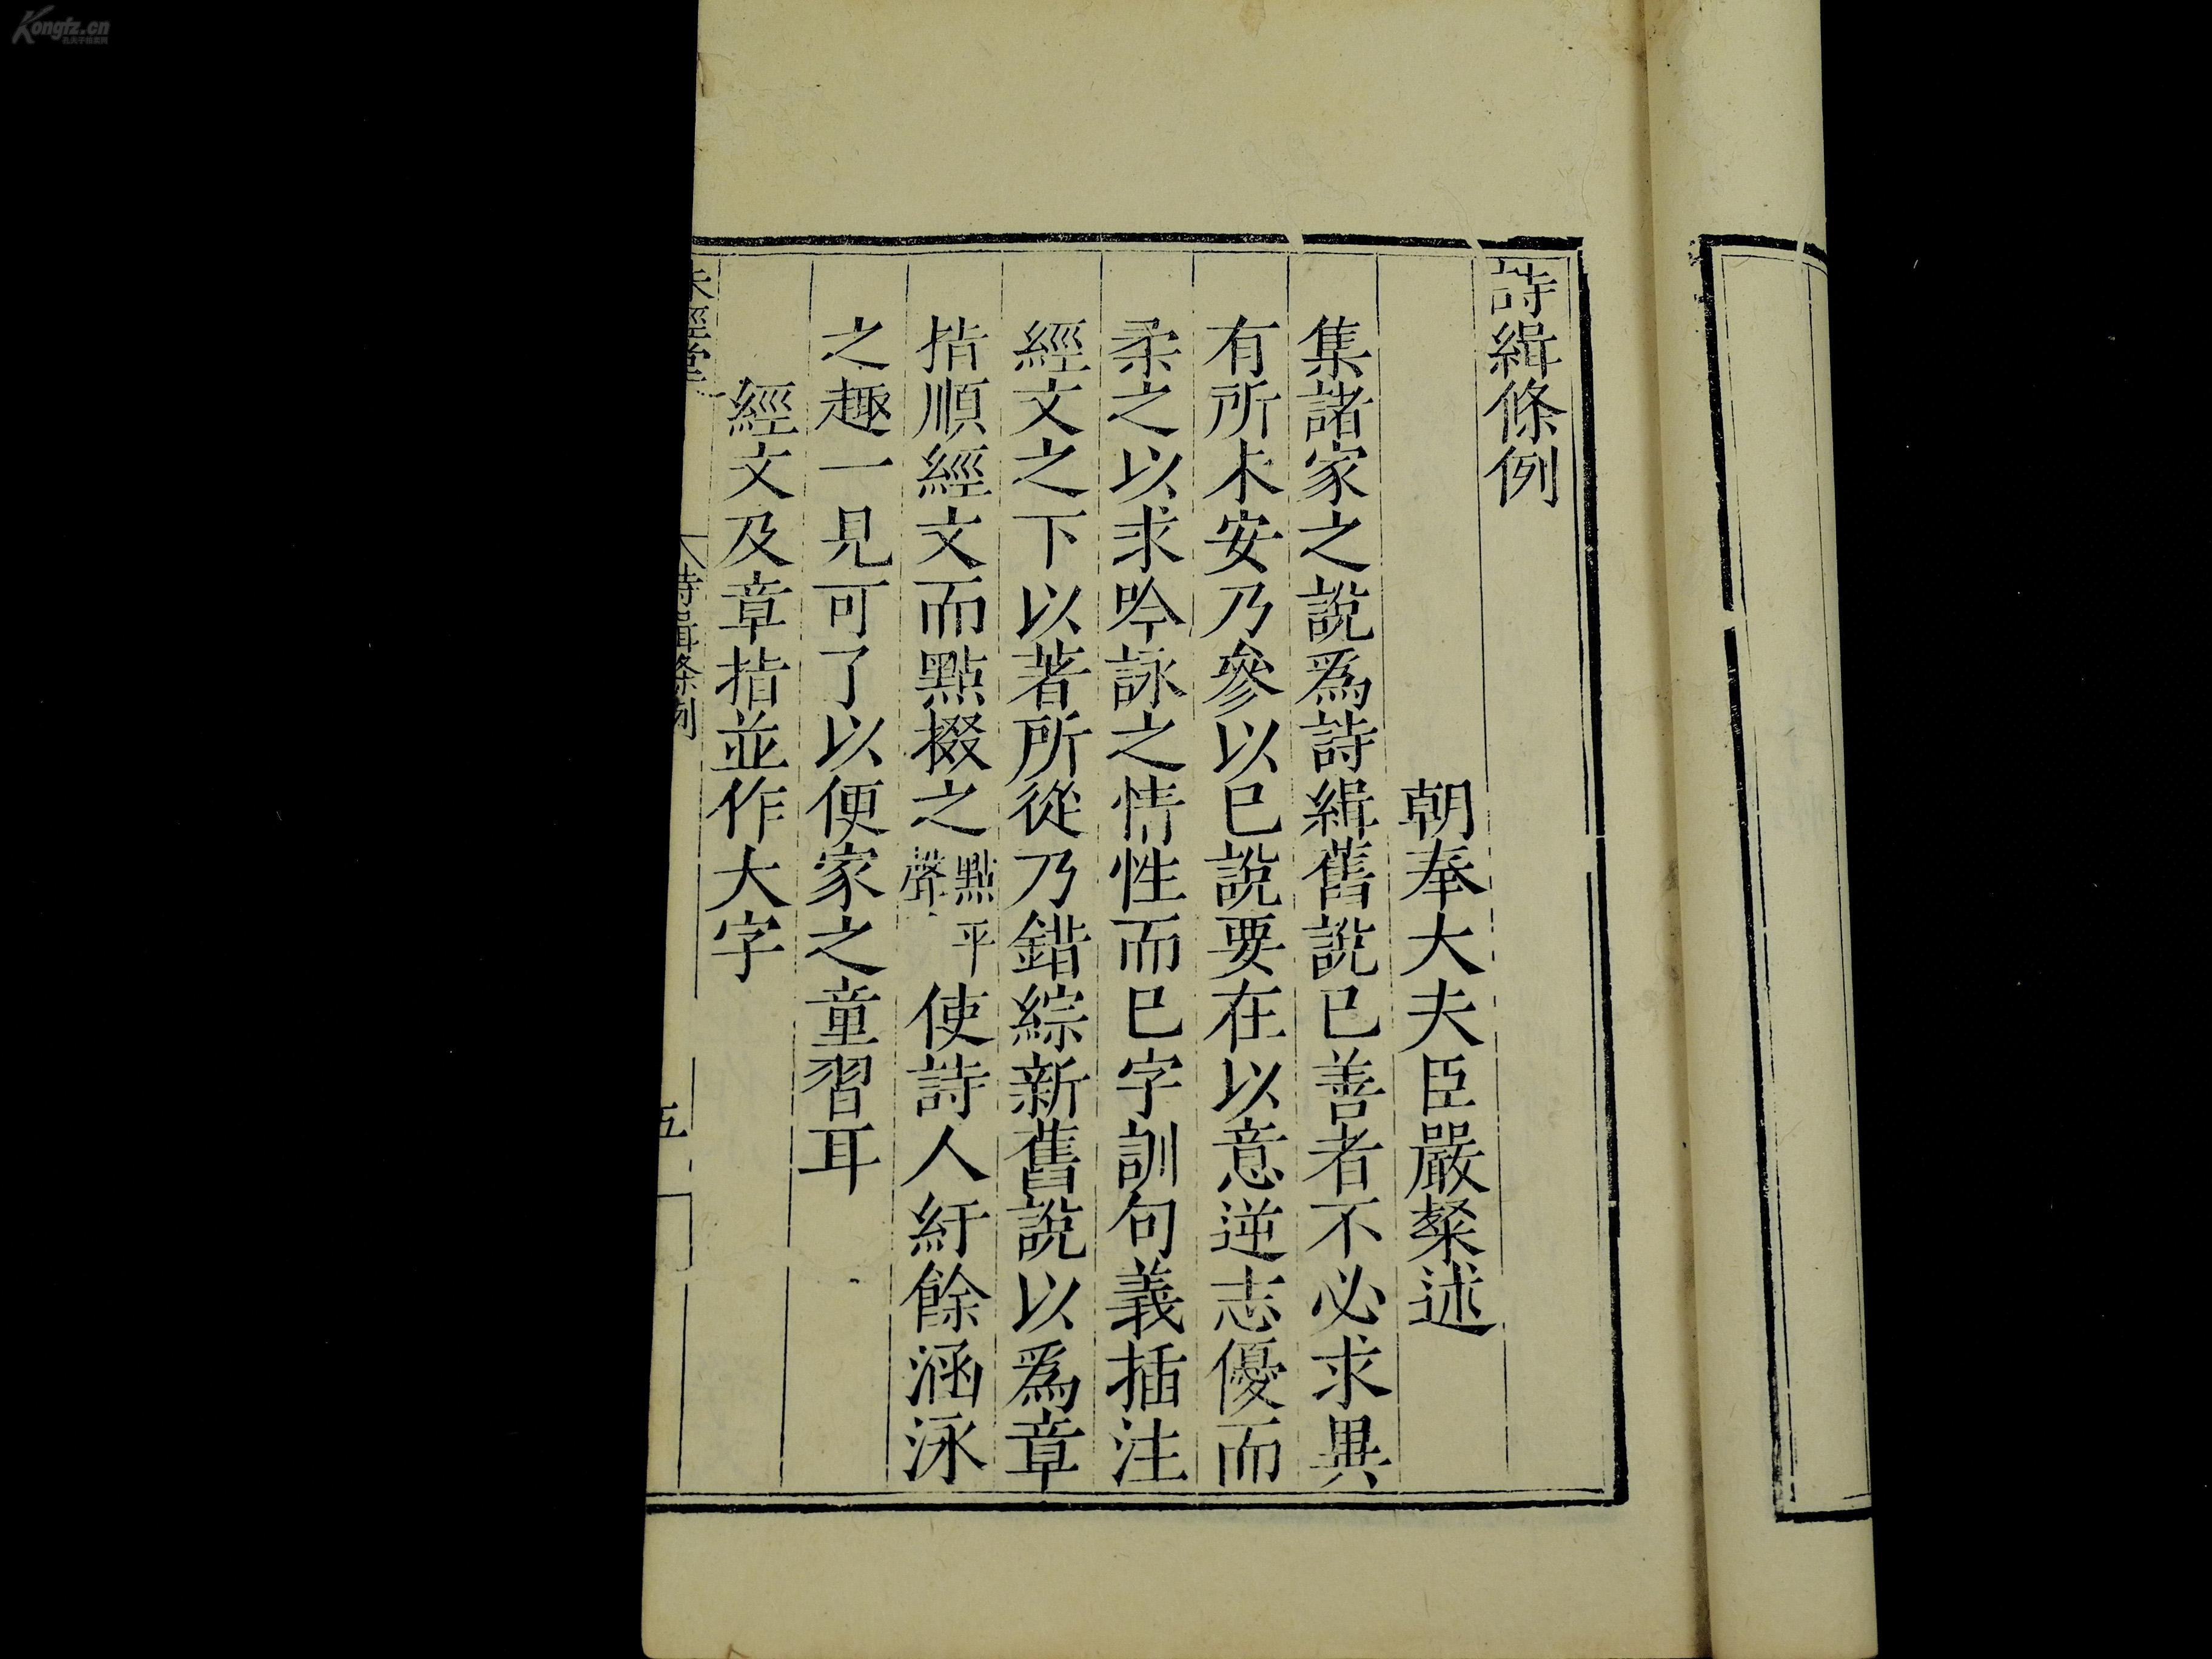 詩緝條例
朝奉大夫臣嚴粲述
集諸家之說爲詩緝舊說已善者不必求異
有所未安乃參以已說要在以意逆志優而
柔之以求吟詠之情性而已字訓句義插注
經文之下以著所從乃錯綜新舊說以爲章
指順經文而點掇之點平聲使詩人紆餘涵泳
之趣一見可了以便家之童習耳
經文及章指並作大字
經堂
詩緝條例
五
Kongfz.cn
孔夫子旧书网